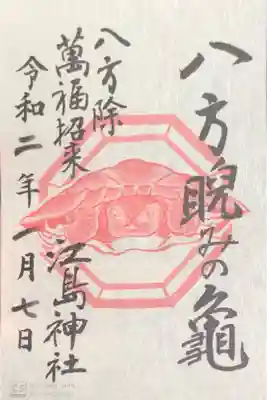 八方睨みの亀
八方除
萬福招来
江島神社
令和二年一月七日